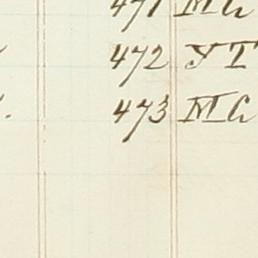 471 M G
472 Y T
473 M G